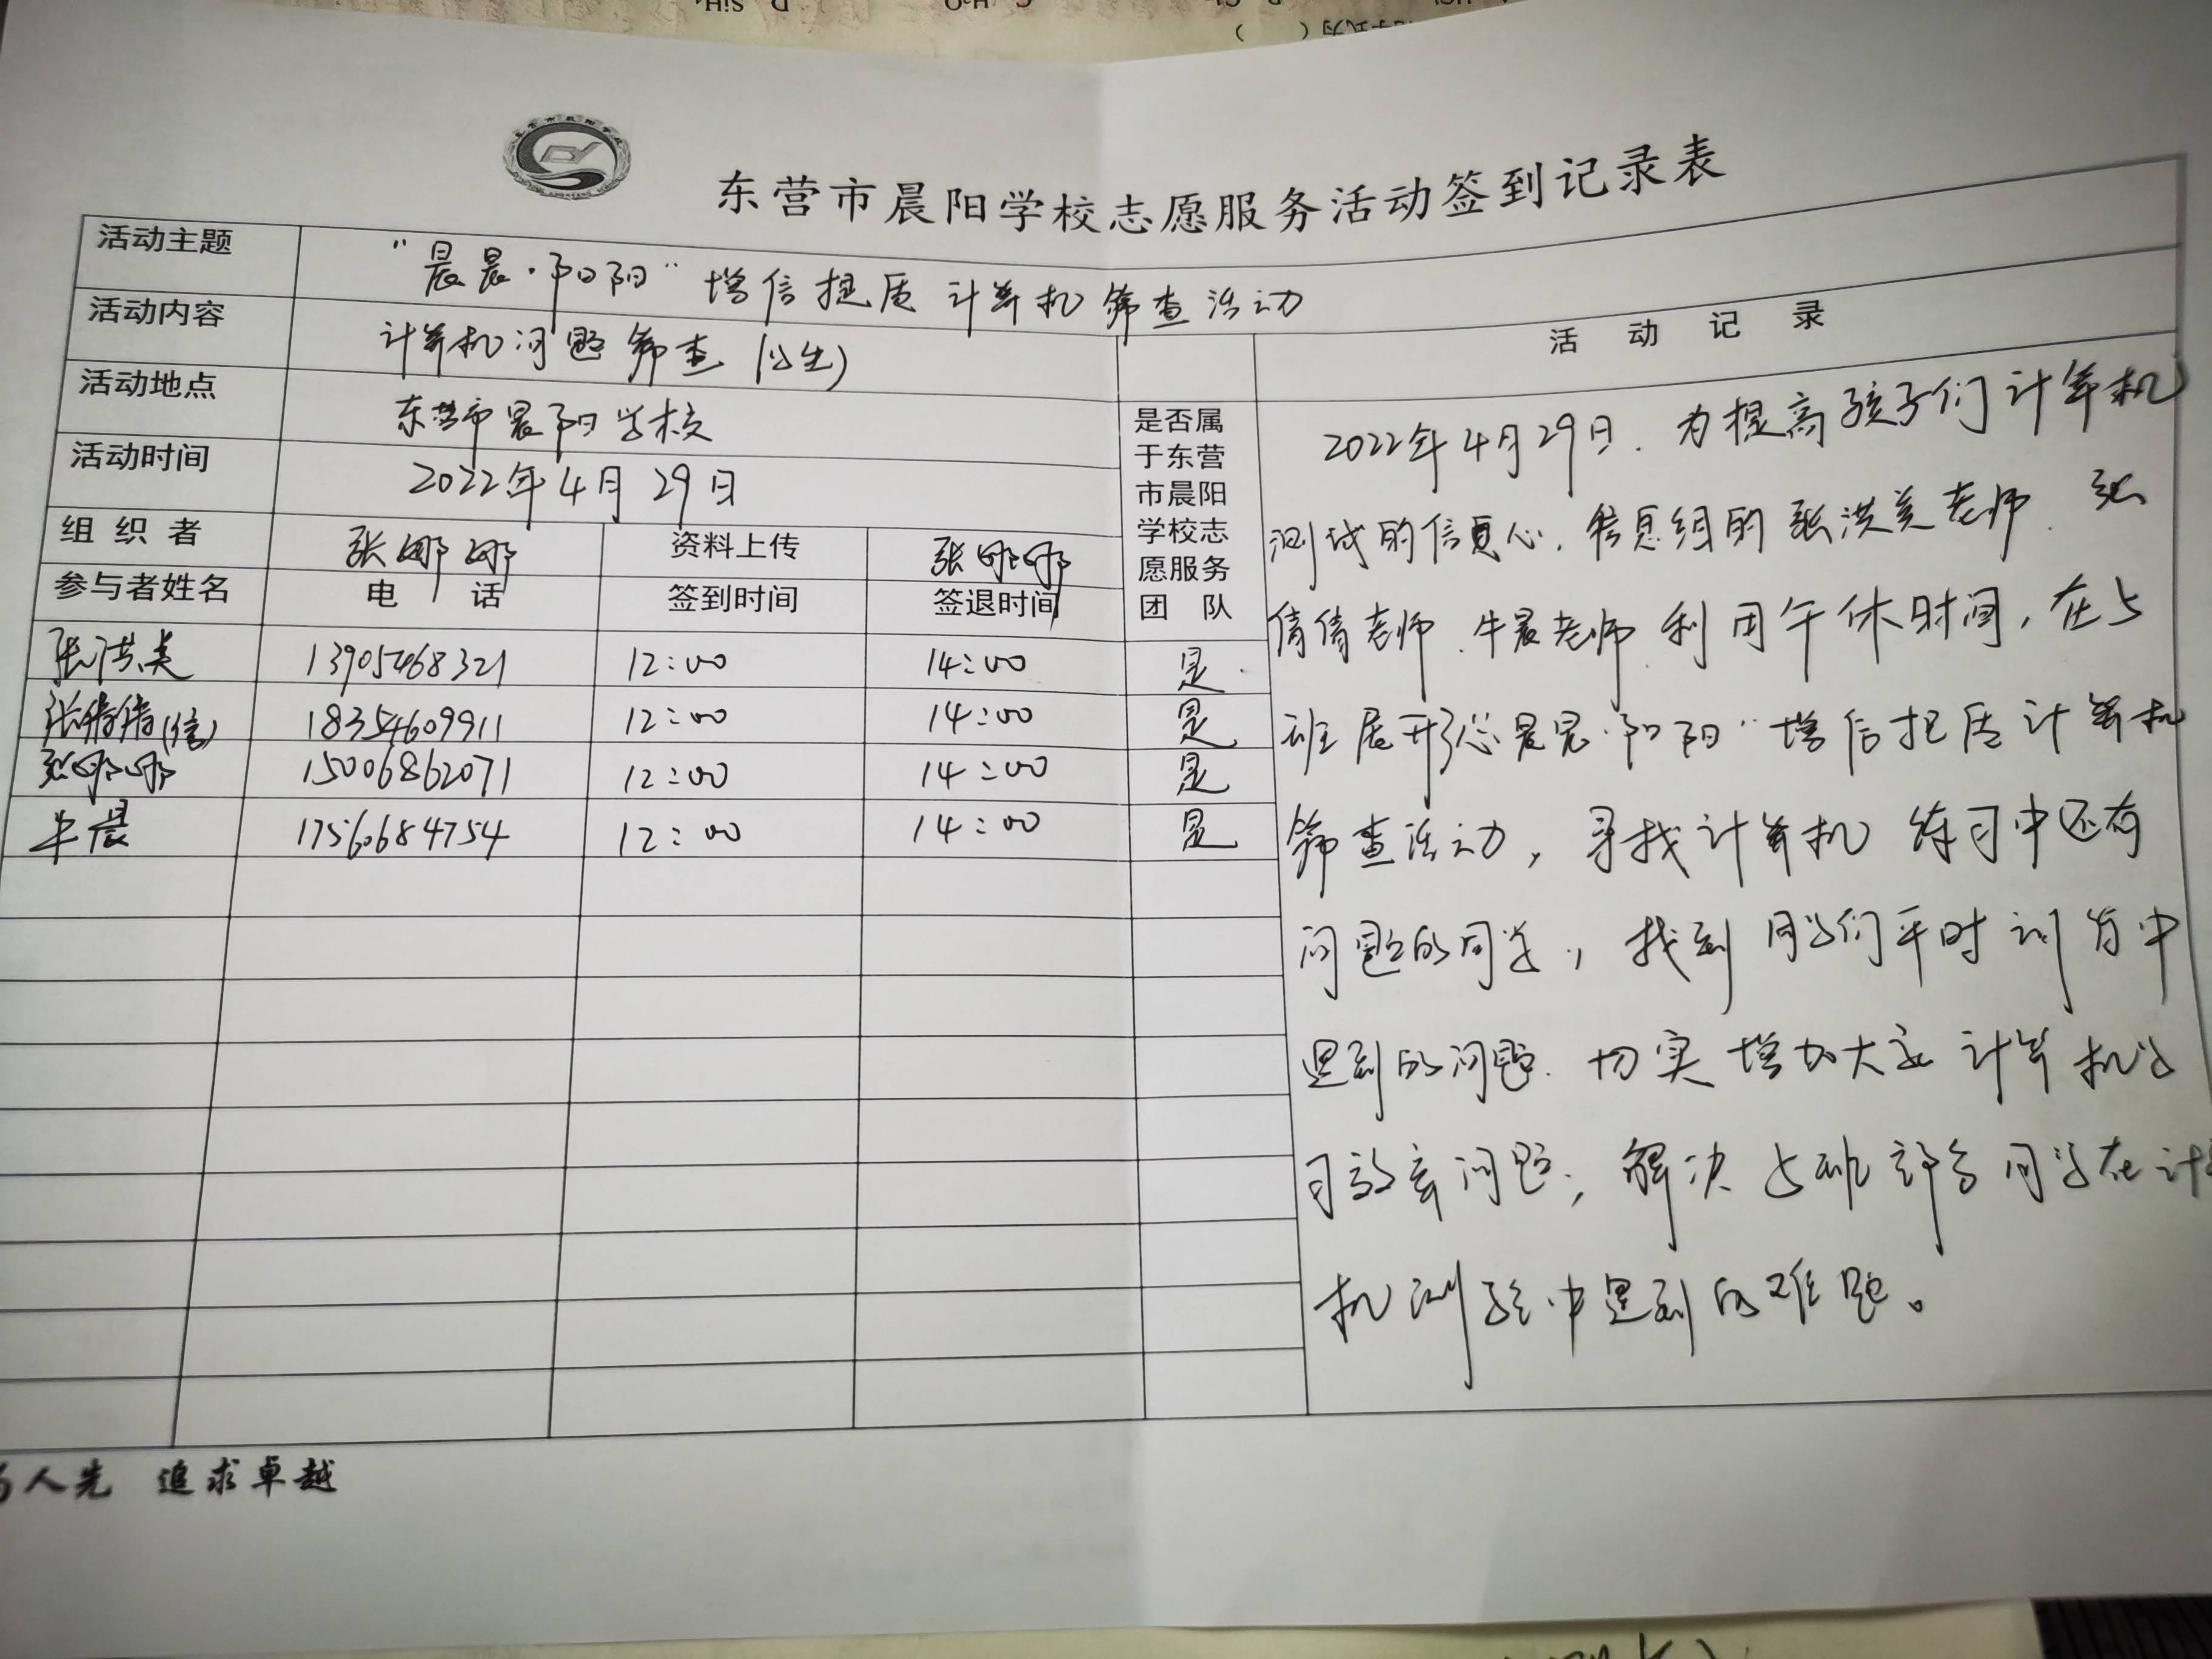 东营市晨阳学校志愿服务活动签到记录表
活动主题 "晨晨·阳阳"增信提质计算机筛查活动
活动内容 计算机问题筛查
活动地点 东营市晨阳学校
活动时间 2022年4月29日
组织者 张娜娜 资料上传 张娜娜
参与者姓名 电话 签到时间 签退时间
是否属
于东营
市晨阳
学校志
愿服务
团队
张洪美 13905468321 12:00 14:00 是
张倩倩(信) 18354609911 12:00 14:00 是
张娜娜 15006862071 12:00 14:00 是
牛晨 17560684754 12:00 14:00 是
活动记录
2022年4月29日.为提高孩子们计算机
测试的信心,信息组的张洪美老师.张
倩倩老师.牛晨老师利用午休时间,在5
班展开了晨晨·阳阳"增信提质计算机
筛查活动,寻找计算机练习中还有
问题的同学,找到同学们平时训练中
遇到的问题.切实增加大家计算机学
习效率问题,解决5班部分同学在计算
机测验中遇到的难题。
人先 追求卓越